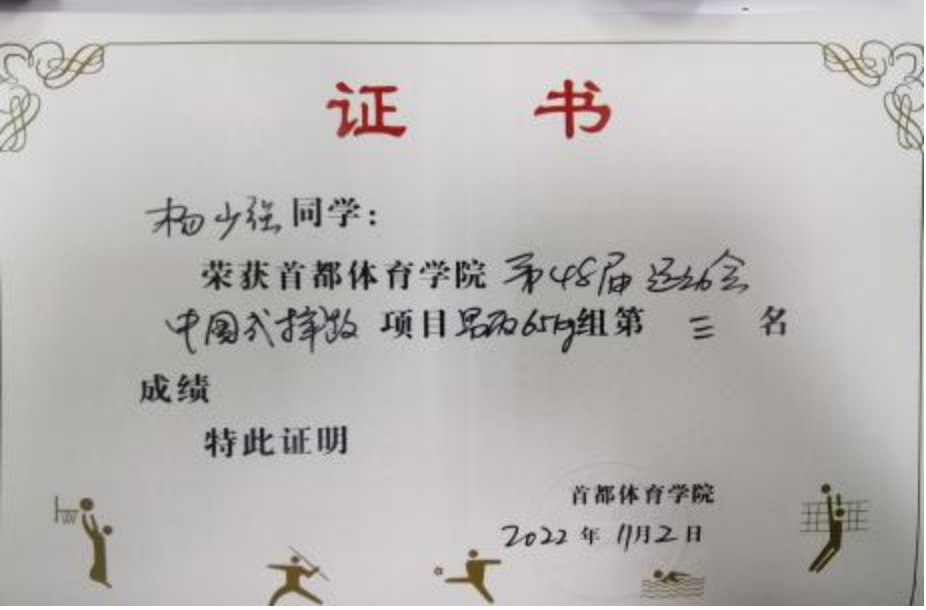 证 书
杨少强同学：
荣获首都体育学院 第48届运动会
中国式摔跤 项目男丙65kg组第 三 名
成绩
特此证明
首都体育学院
2022年 11月2日